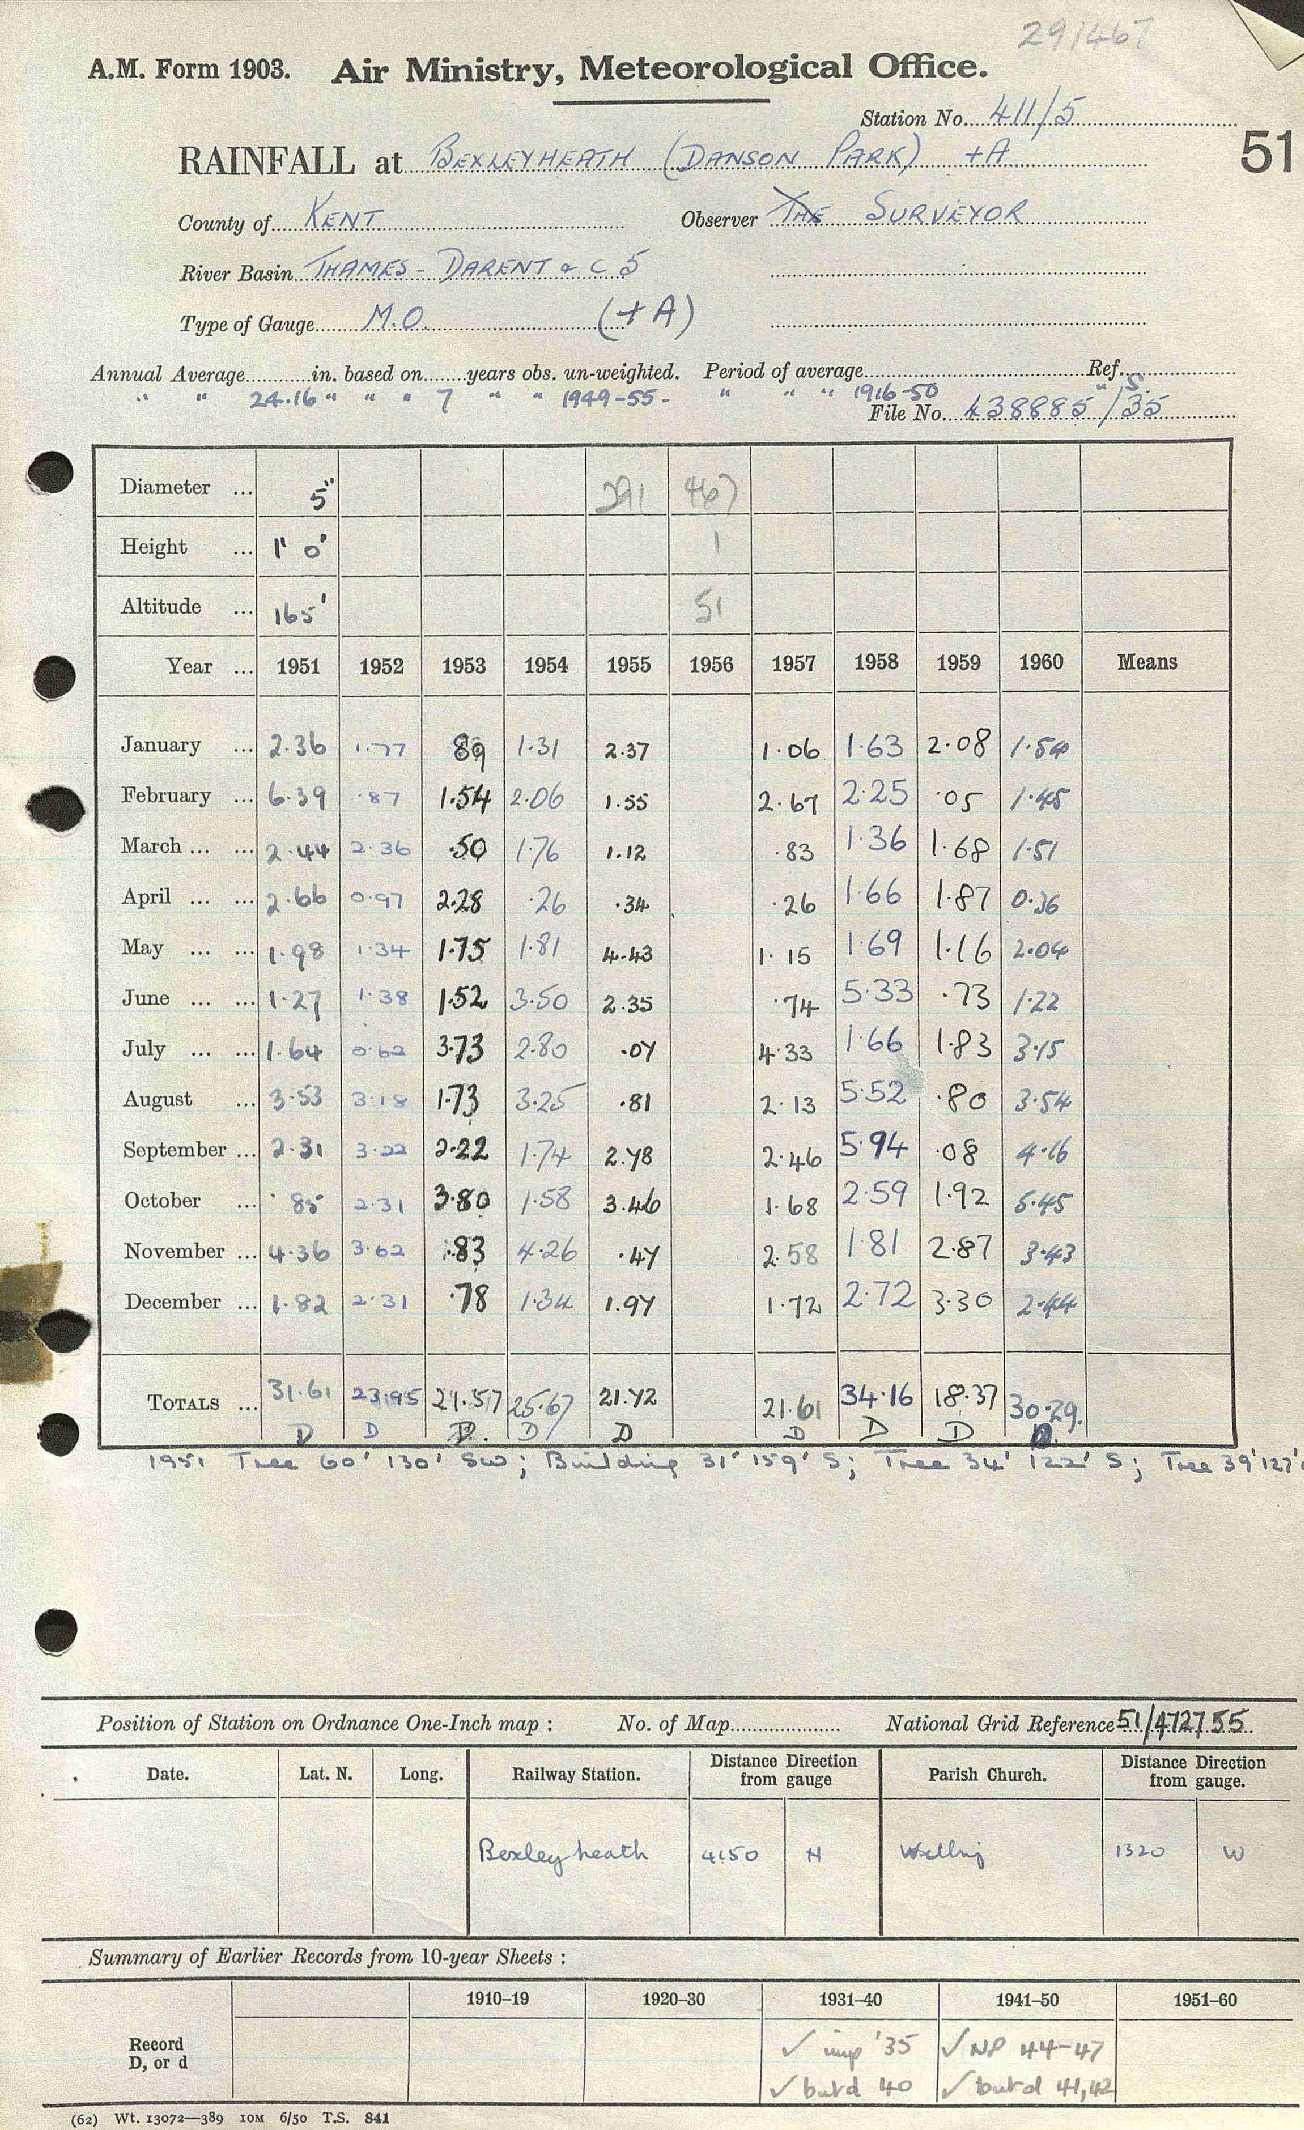 291467
A.M. Form 1903. Air Ministry, Meteorological Office.
Station No. 411/5
51
RAINFALL at BEXLEYHEATH (DANSON PARK) +A
County of KENT Observer THE SURVEYOR
River Basin THAMES - DARENT & C 5
Type of Gauge M.O. (+A)
Annual Average in. based on years obs. un-weighted. Period of average Ref.
" " 24.16 " " " 7 " " 1949-55. " " " 1916-50 " S.
File No. 438885/35
Diameter ... 5" 291 467
Height ... 1' 0" 1
Altitude ... 165' 51
Year ... 1951 1952 1953 1954 1955 1956 1957 1958 1959 1960 Means
January ... 2.36 1.77 .89 1.31 2.37 1.06 1.63 2.08 1.54
February ... 6.39 .87 1.54 2.06 1.55 2.67 2.25 .05 1.45
March ... ... 2.44 2.36 .50 1.76 1.12 .83 1.36 1.68 1.51
April ... ... 2.66 0.97 2.28 .26 .34 .26 1.66 1.87 0.36
May ... ... 1.98 1.34 1.75 1.81 4.43 1.15 1.69 1.16 2.04
June ... ... 1.27 1.38 1.52 3.50 2.35 .74 5.33 .73 1.22
July ... ... 1.64 0.62 3.73 2.80 .07 4.33 1.66 1.83 3.15
August ... 3.53 3.18 1.73 3.25 .81 2.13 5.52 .80 3.54
September ... 2.31 3.22 2.22 1.74 2.78 2.46 5.94 .08 4.16
October ... .85 2.31 3.80 1.58 3.46 1.68 2.59 1.92 5.45
November ... 4.36 3.62 .83 4.26 .47 2.58 1.81 2.87 3.43
December ... 1.82 2.31 .78 1.34 1.97 1.72 2.72 3.30 2.44
TOTALS ... 31.61 23.95 21.57 25.67 21.72 21.61 34.16 18.37 30.29
D D D. D D D D D D.
1951 Tree 60' 130' SW; Building 31' 159' S; Tree 34' 122' S; Tree 39' 127'
Position of Station on Ordnance One-Inch map : No. of Map National Grid Reference 51/472755
Date. Lat. N. Long. Railway Station. Distance Direction from gauge Parish Church. Distance Direction from gauge.
Bexleyheath 4150 N Welling 1320 W
Summary of Earlier Records from 10-year Sheets :
1910–19 1920–30 1931–40 1941–50 1951–60
Record D, or d
✓ imp '35 ✓ NP 44-47
✓ but d 40 ✓ but d 41,42
(62) Wt. 13072—389 10M 6/50 T.S. 841